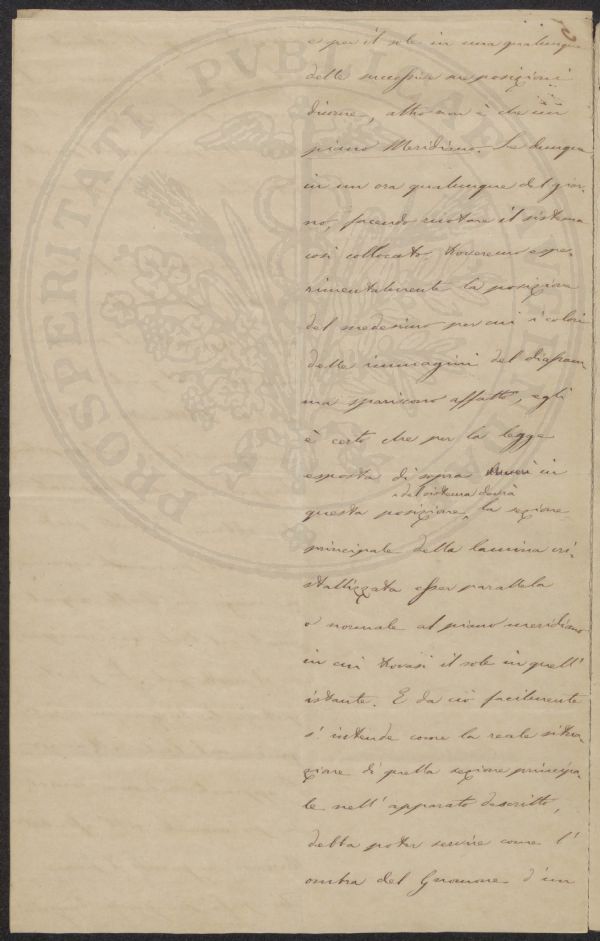 e per il sole in una qualunque
delle successive sue posizioni
diurne, altro non è che un
piano Meridiano. Se dunque
in un ora qualunque del gior-
no, facendo ruotare il sistema
così collocato, troveremo spe-
rimentalmente la posizione
del medesimo per cui i colori
delle immagini del diafram-
ma spariscono affatto, egli
è certo che per la legge
esposta di sopra in
questa posizione del sistema dovrà la sezione
principale della lamina cri-
stallizzata esser parallela
o normale al piano meridiano
in cui trovasi il sole in quell'
istante. E da ciò facilmente
s'intende come la reale situa-
zione di quella sezione principa-
le nell'apparato descritto,
debba poter servire come l'
ombra del Gnomone d'un
PROSPERITATI PVBLICAE